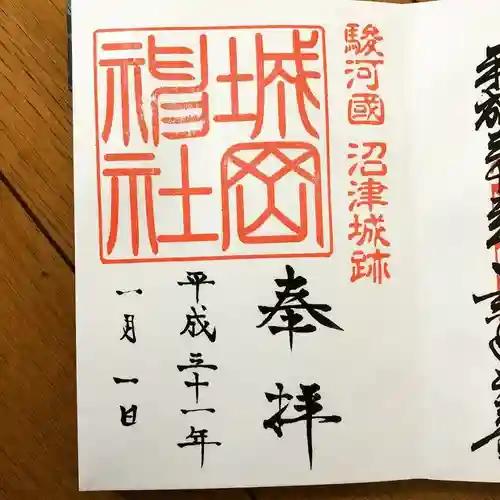 駿河國 沼津城跡
城岡
神社
奉拝
平成三十一年
一月一日